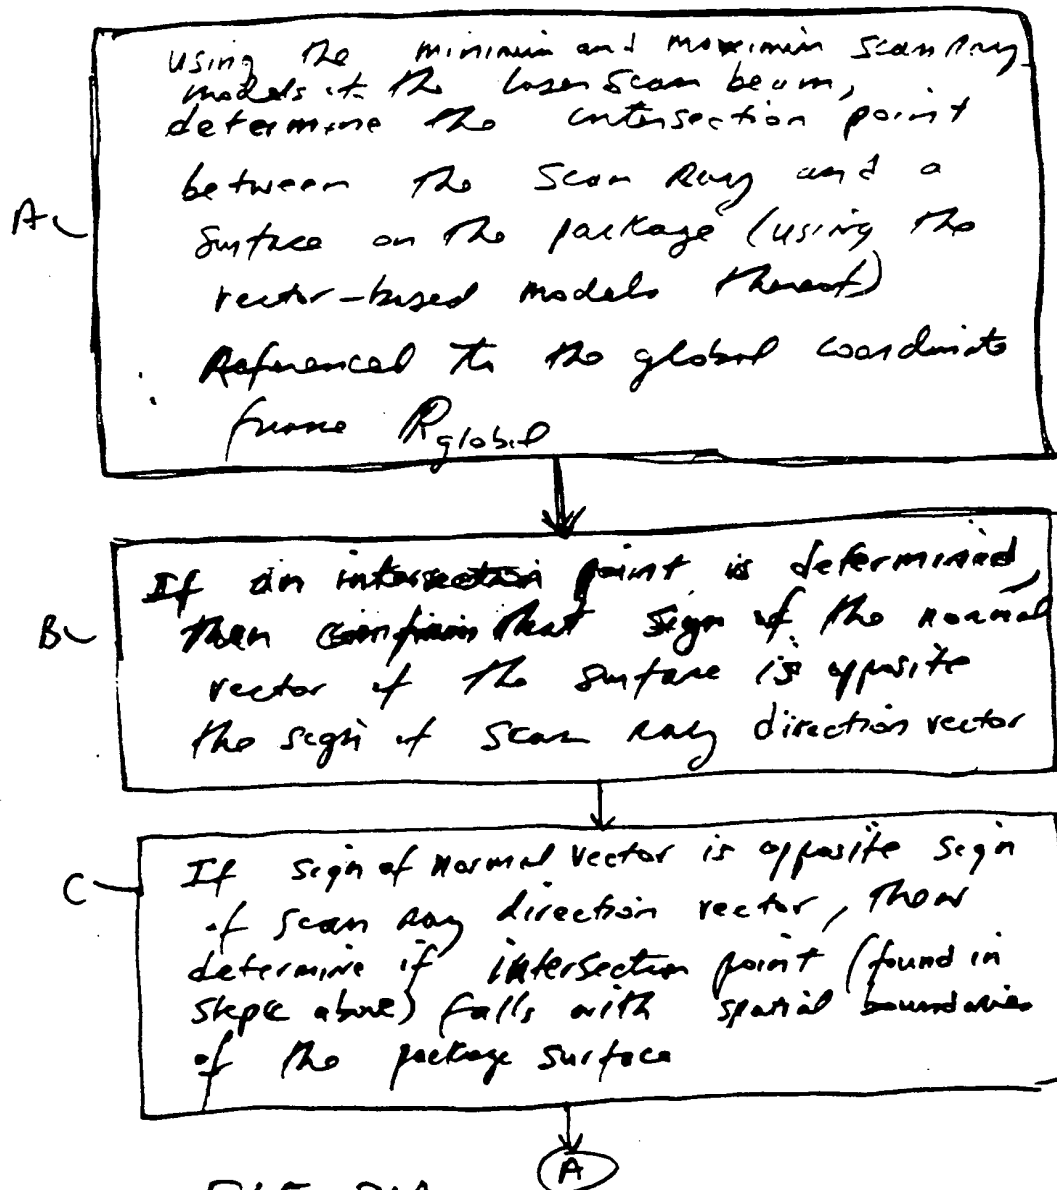 using the minimum and maximum scan Ray
models of the laser scan beam,
determine the intersection point
between the scan Ray and a
surface on the package (using the
vector-based models thereof)
Referenced to the global coordinate
frame R global
A
If an intersection point is determined,
then confirm that sign of the normal
vector of the surface is opposite
the sign of scan ray direction vector
B
If sign of normal vector is opposite sign
of scan ray direction vector, then
determine if intersection point (found in
above) falls with spatial boundaries
of the package surface
C
A